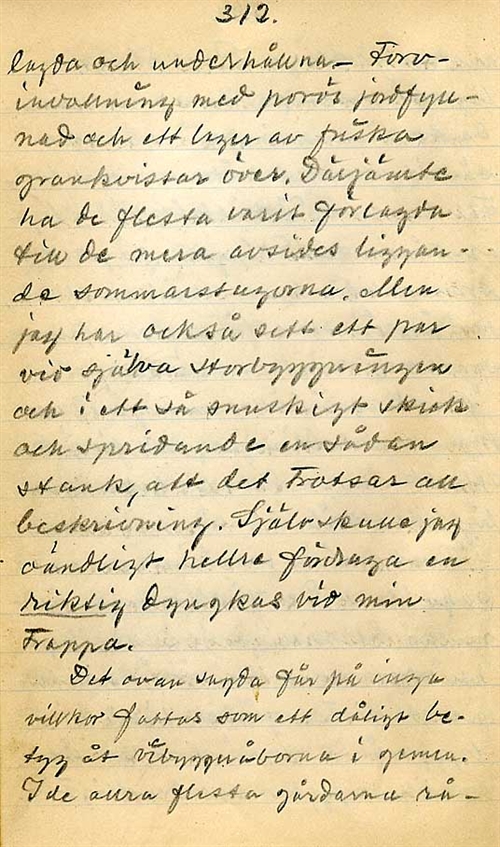 312.
lagda och underhållna – Torv-
inblandning med porös jordfyll-
nad och ett lager av friska
grankvistar över. Därjämte
ha de flesta varit förlagda
till de mera avsides liggan-
de sommarstugorna. Men
jag har också sett ett par
vid själva storbyggningen
och i ett så snuskigt skick
och spridande en sådan
stank, att det trotsar all
beskrivning. Själv skulle jag
oändligt hellre fördraga en
riktig dyngkas vid min
trappa.
Det ovan sagda får på inga
villkor fattas som ett dåligt be-
tyg åt vibyggeråborna i gemen.
I de allra flesta gårdarna rå-